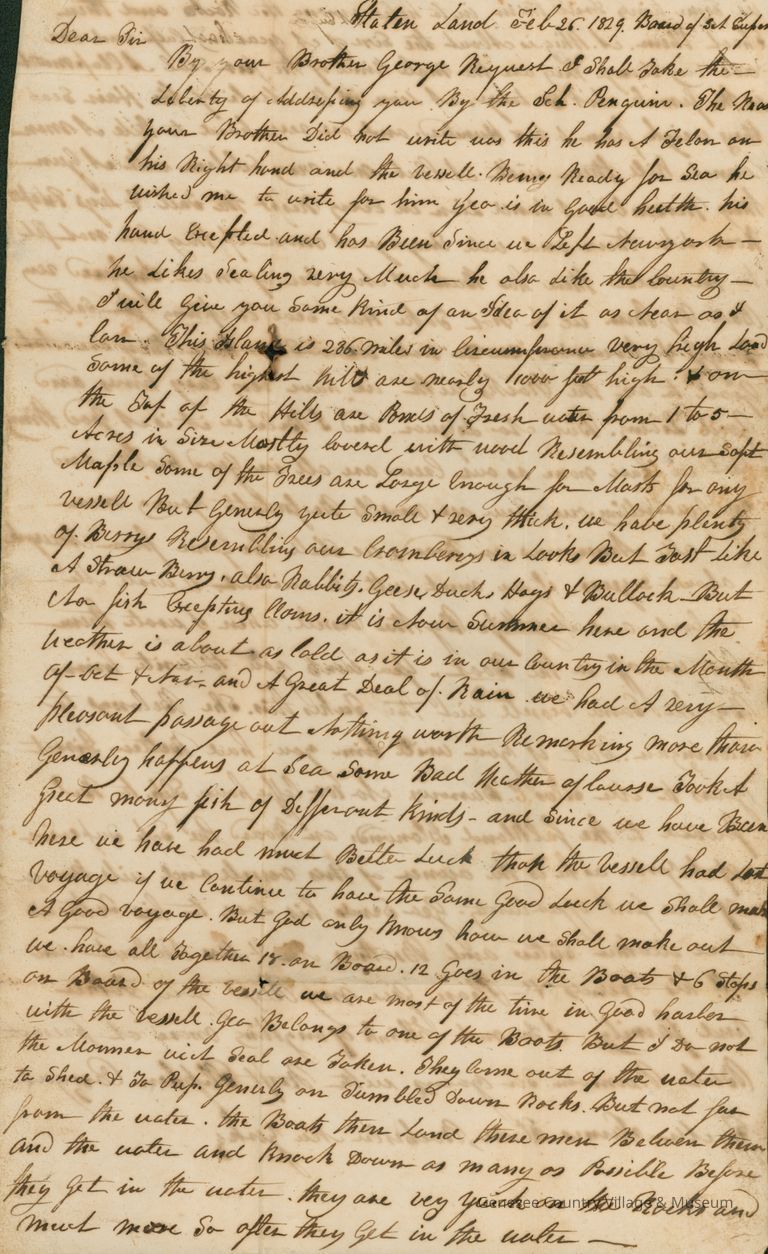 Staten Land Feb 26. 1829. Board of Sch Super
Dear Sir
By your Brother George Request I Shall Take the
Liberty of Addressing you By the Sch. Penguin. The Reas
your Brother Did not write was this he has A Felon on
his Right hand and the vessell. Being Ready for Sea he
wished me to write for him Geo is in Good helth. his
hand Excepted and has Been Since we Left Newyork
he Likes Sealing very Much he also Like the Country
I will Give you Some kind of an Idea of it as Near as I
Can. This Island is 236 miles in Circumfrance very high Land
Some of the highest hills are nearly 1000 feet high. & on
the Top of the Hills are Ponds of Fresh water from 1 to 5
Acres in Size Mostly Coverd with wood Resembling our Soft
Maple Some of the Trees are Large Enough for Masts for any
vessell But Generly quite Small & very thick. we have plenty
of Berrys Resembling our Cramberys in Looks But Tast Like
A Straw Berry. also Rabbits, Geese, Ducks Hogs & Bullock But
No fish Excepting Clams. it is Now Summer here and the
weather is about as Cold as it is in our Country in the Month
of Oct & Nov. and A Great Deal of Rain we had A very
pleasant passage out Nothing worth Remarking more than
Generly happens at Sea Some Bad Wather of Course Took A
Great many fish of Differant kinds - and Since we have Been
here we have had much Better Luck than the vessell had Last
voyage if we Continue to have the Same Good Luck we Shall mak
A Good voyage. But God only knows how we Shall make out
we have all Together 18 on Board. 12 Goes in the Boats & 6 Stops
on Board of the vessell we are most of the time in Good harbor
with the vessell. Geo Belongs to one of the Boats But I Do not
the Manner wich Seal are Taken. They Come out of the water
to Shed. & To Pup. Generly on Tumbled Down Rocks. But not far
from the water. the Boats then Land these men Between them
and the water and knock Down as many as Possible Before
they Get in the water. they are very on the Rocks and
much more So after they Get in the water
Genesee Country Village & Museum